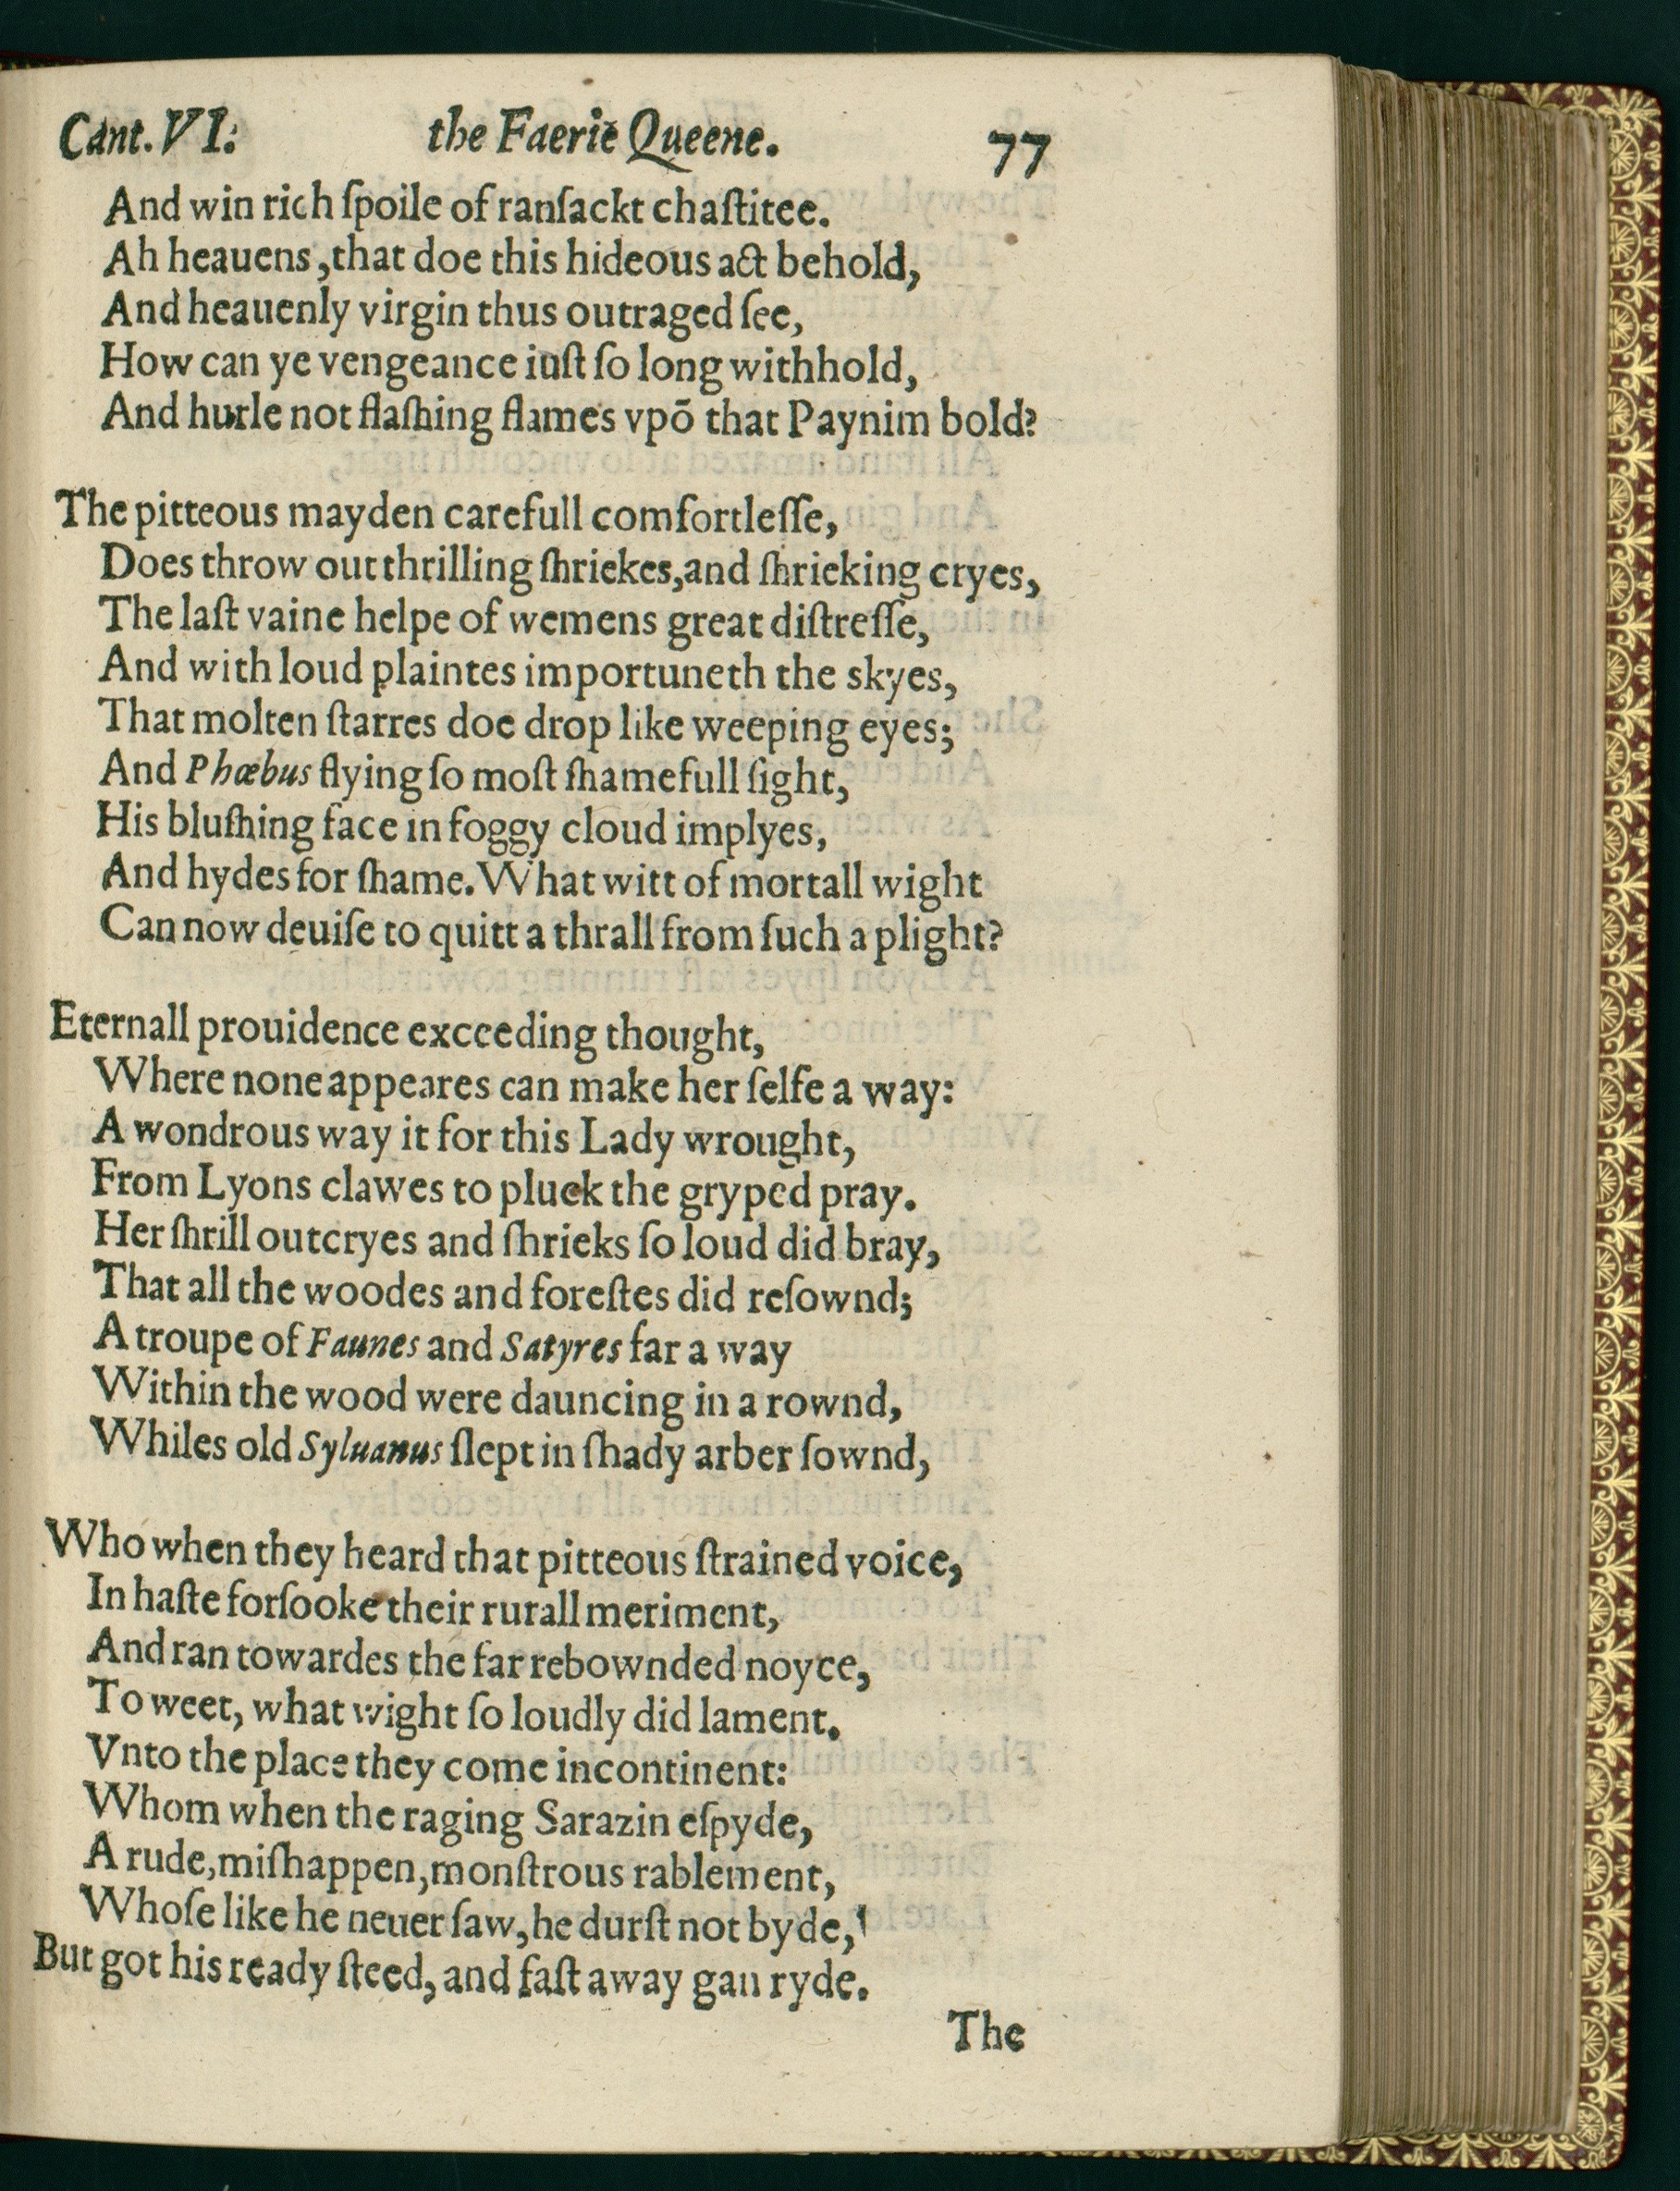 Cant. VI: the Faerie Queene. 77
And win rich ſpoile of ranſackt chaſtitee.
Ah heauens, that doe this hideous act behold,
And heauenly virgin thus outraged ſee,
How can ye vengeance iuſt ſo long withhold,
And hurle not flaſhing flames vpō that Paynim bold?
The pitteous mayden carefull comfortleſſe,
Does throw out thrilling ſhriekes, and ſhrieking cryes,
The laſt vaine helpe of wemens great diſtreſſe,
And with loud plaintes importuneth the skyes,
That molten ſtarres doe drop like weeping eyes;
And Phœbus flying ſo moſt ſhamefull ſight,
His bluſhing face in foggy cloud implyes,
And hydes for ſhame. What witt of mortall wight
Can now deuiſe to quitt a thrall from ſuch a plight?
Eternall prouidence exceeding thought,
Where none appeares can make her ſelfe a way:
A wondrous way it for this Lady wrought,
From Lyons clawes to pluck the gryped pray.
Her ſhrill outcryes and ſhrieks ſo loud did bray,
That all the woodes and foreſtes did reſownd;
A troupe of Faunes and Satyres far a way
Within the wood were dauncing in a rownd,
Whiles old Syluanus ſlept in ſhady arber ſownd,
Who when they heard that pitteous ſtrained voice,
In haſte forſooke their rurall meriment,
And ran towardes the far rebownded noyce,
To weet, what wight ſo loudly did lament.
Vnto the place they come incontinent:
Whom when the raging Sarazin eſpyde,
A rude, miſhappen, monſtrous rablement,
Whoſe like he neuer ſaw, he durſt not byde,
But got his ready ſteed, and faſt away gan ryde.
The